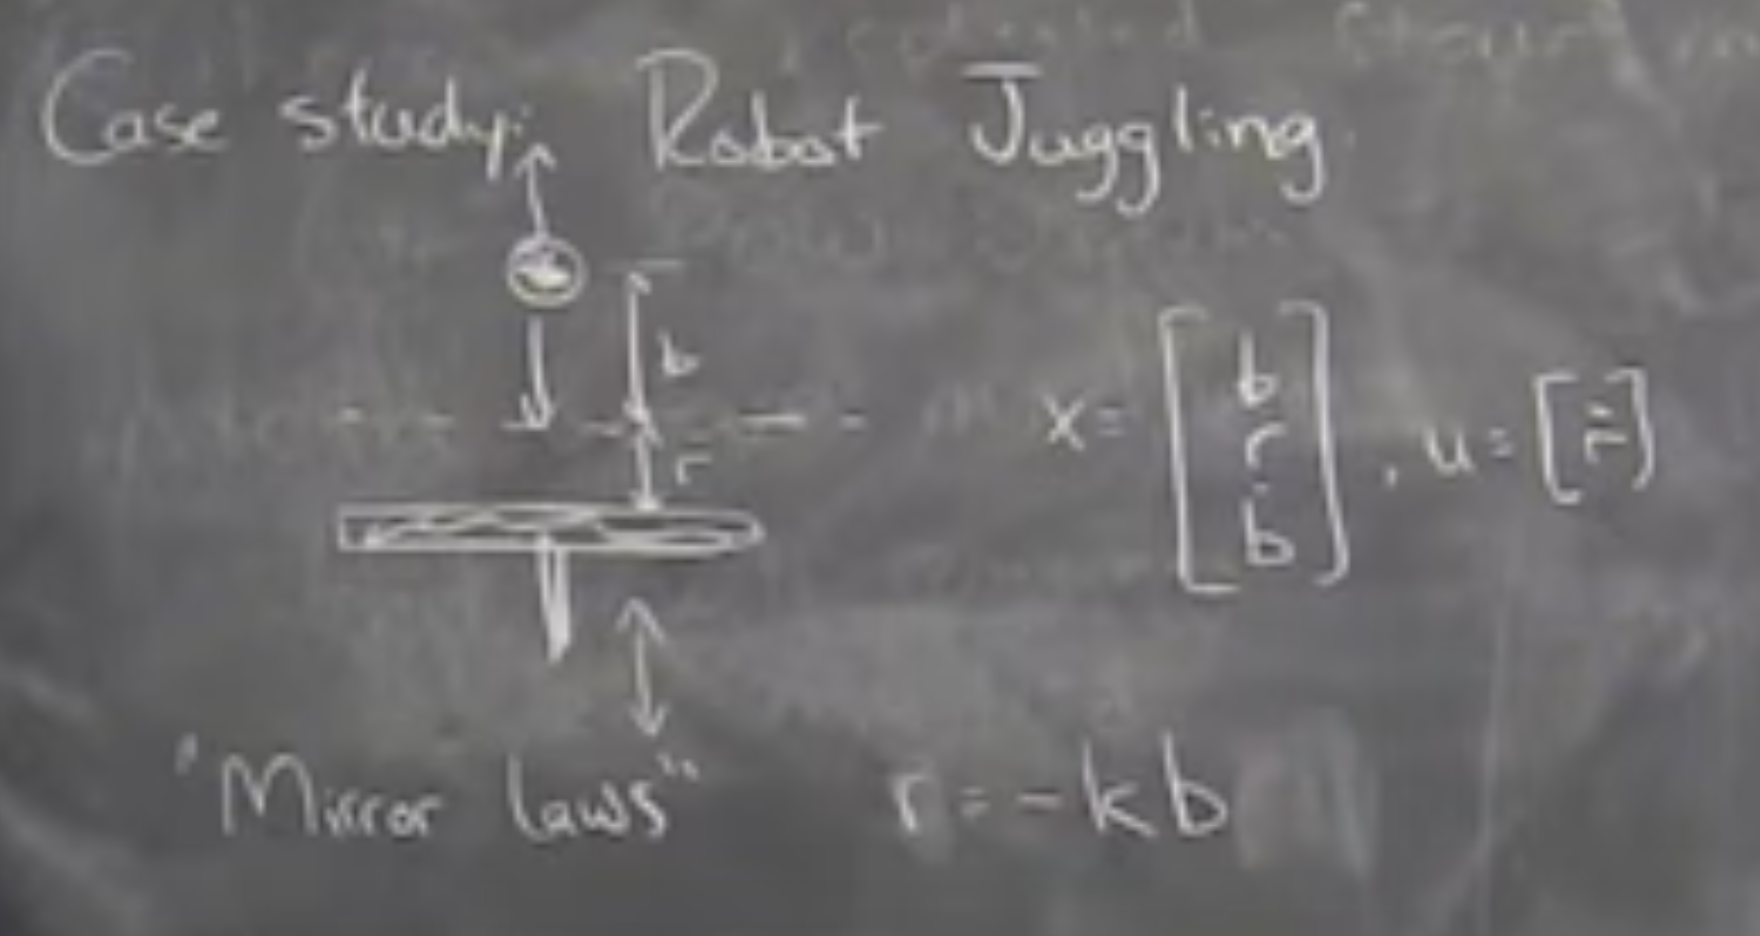 Case study: Robot Juggling
b
r
x = [b r ḃ], u = [ṙ]
"Mirror laws" r = -kb